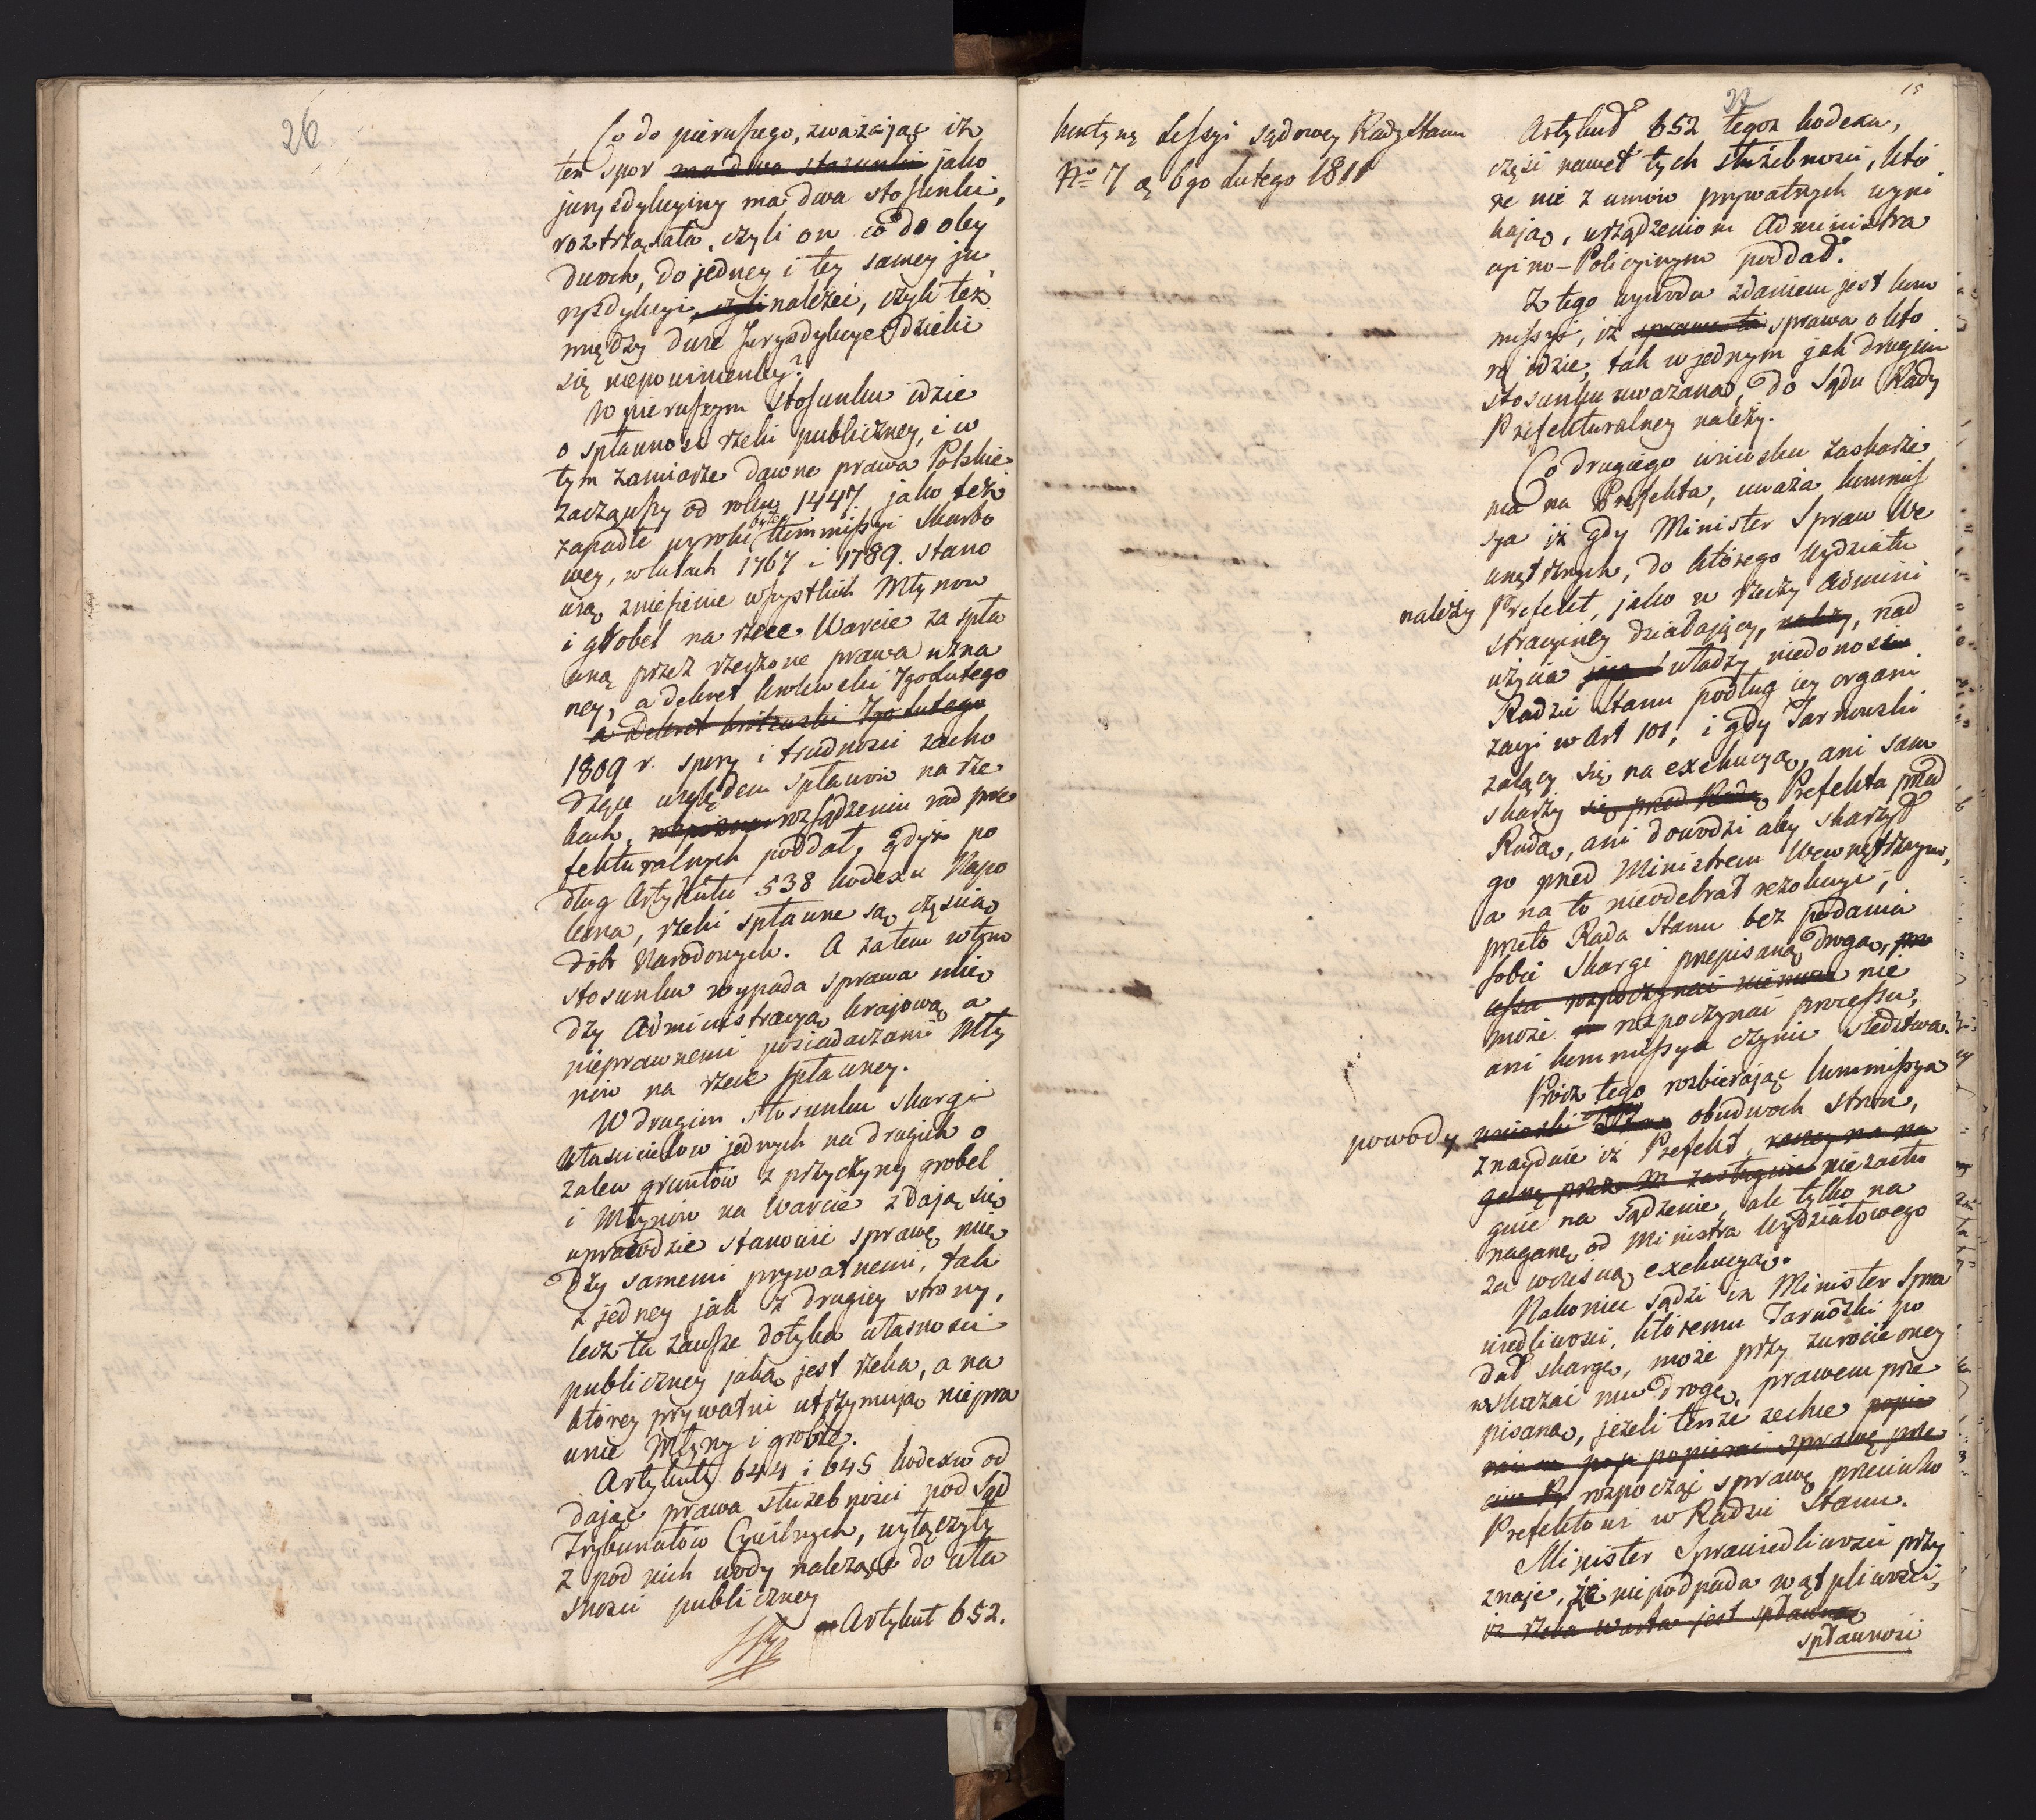 26
Co do pierwszego, zważając iż
ten spor ma dwa stosunki jako
juryzdykcyiny ma dwa stosunki,
roztrząsała, czyli on co do oby
dwoch, do jedney i tey samey ju
ryzdykcyi, czyli należeć, czyli też
między dwie Juryzdykcye dzielić
się niepowinienby?
W pierwszym stosunku idzie
o spławność rzeki publiczney, i w
tym zamiarze dawne prawa Polskie
zacząwszy od roku 1447 jako też
zapadłe wyroki były Kommissyi Skarbo
wey, w latach 1767 i 1789. stano
wią zniesienie wszystkich Młynow
i grobel na rzece Warcie za spła
wną przez rzeczone prawa uzna
ney, a dekret krolewski 7go lutego
a Dekret krolewski 7go lutego
1809 r. spory i trudności zacho
dzące względem spławow na rze
kach, rozsądzeniu rad pre
fekturalnych poddał, gdyż po
dług Artykułu 538 kodexu Napo
leona, rzeki spławne są częścią
dóbr Narodowych. A zatem w tym
stosunku wypada sprawa mię
dzy Administracyą kraiową a
nieprawnemi posiadaczami Mły
nów na rzece spławney.
W drugim stosunku skargi
właścicielow jednych na drugich o
zalew gruntów z przyczyny grobel
i Młynów na Warcie zdają się
wprawdzie stanowić sprawę mię
dzy samemi prywatnemi, tak
z jedney jak z drugiey strony,
lecz ta zawsze dotyka własności
publiczney jaką jest rzeka, a na
którey prywatni utrzymują niepra
wnie Młyny i groble.
Artykuły 644 i 645 kodexu od
dając prawa służebności pod Sąd
Trybunałów Cywilnych, wyłączyły
z pod nich wody należące do wła
sności publiczney
Artykuł 652.
27
15
kontyną Sessyi sądowey Rady Stanu
No 7 ą 6go Lutego 1811
Artykuł 652 tegoż kodexu,
części nawet tych służebności, któ
re nie z umów prywatnych wyni
kają, urządzeniom Administra
cyino-Policyinym poddał.
Z tego wywodu zdaniem jest kom
missyi, iż sprawa ta sprawa o któ
rą idzie, tak w jednym jak drugim
stosunku uważana, do Sądu Rady
Prefekturalney należy.
Co drugiego wniosku zaskarże
nia na Prefekta, uważa kommis
sya iż gdy Minister Spraw We
wnętrznych, do którego Wydziału
należy Prefekt, jako w rzeczy Admini
stracyiney działający, należy, nad
użycia jego władzy niedonosi
Radzie Stanu podług iey organi
zacyi w Art 101, i gdy Tarnowski
żalący się na exekucyą, ani sam
skarży się przed Radą Prefekta przed
Radą, ani dowodzi aby skarżył
go przed Ministrem Wewnętrznym,
a na to nieodebrał rezolucyi;
przeto Rada Stanu bez podania
sobie skargi przepisaną drogą, pro
cessu rozpoczynać niemoże nie
może rozpoczynać processu,
ani kommissya czynić śledztwa.
Prócz tego rozbierając kommissya
powody wnioski obudwoch stron,
znayduie iż Prefekt,
nie zasłu
guie na sądzenie, ale tylko na
naganę od Ministra Wydziałowego
za wczesną exekucyą.
Nakoniec sądzi iż Minister Spra
wiedliwości, któremu Tarnowski po
dał skargę, może przy zwrocie oney
wskazać mu drogę, prawem prze
pisaną, jeżeli tenże zechce popie
popierać sprawę prze
ciw rozpocząć sprawę przeciwko
Prefektowi w Radzie Stanu.
Minister Sprawiedliwości przy
znaje, że niepodpada wątpliwości,
iż rzeka Warta jest spławną
spławność